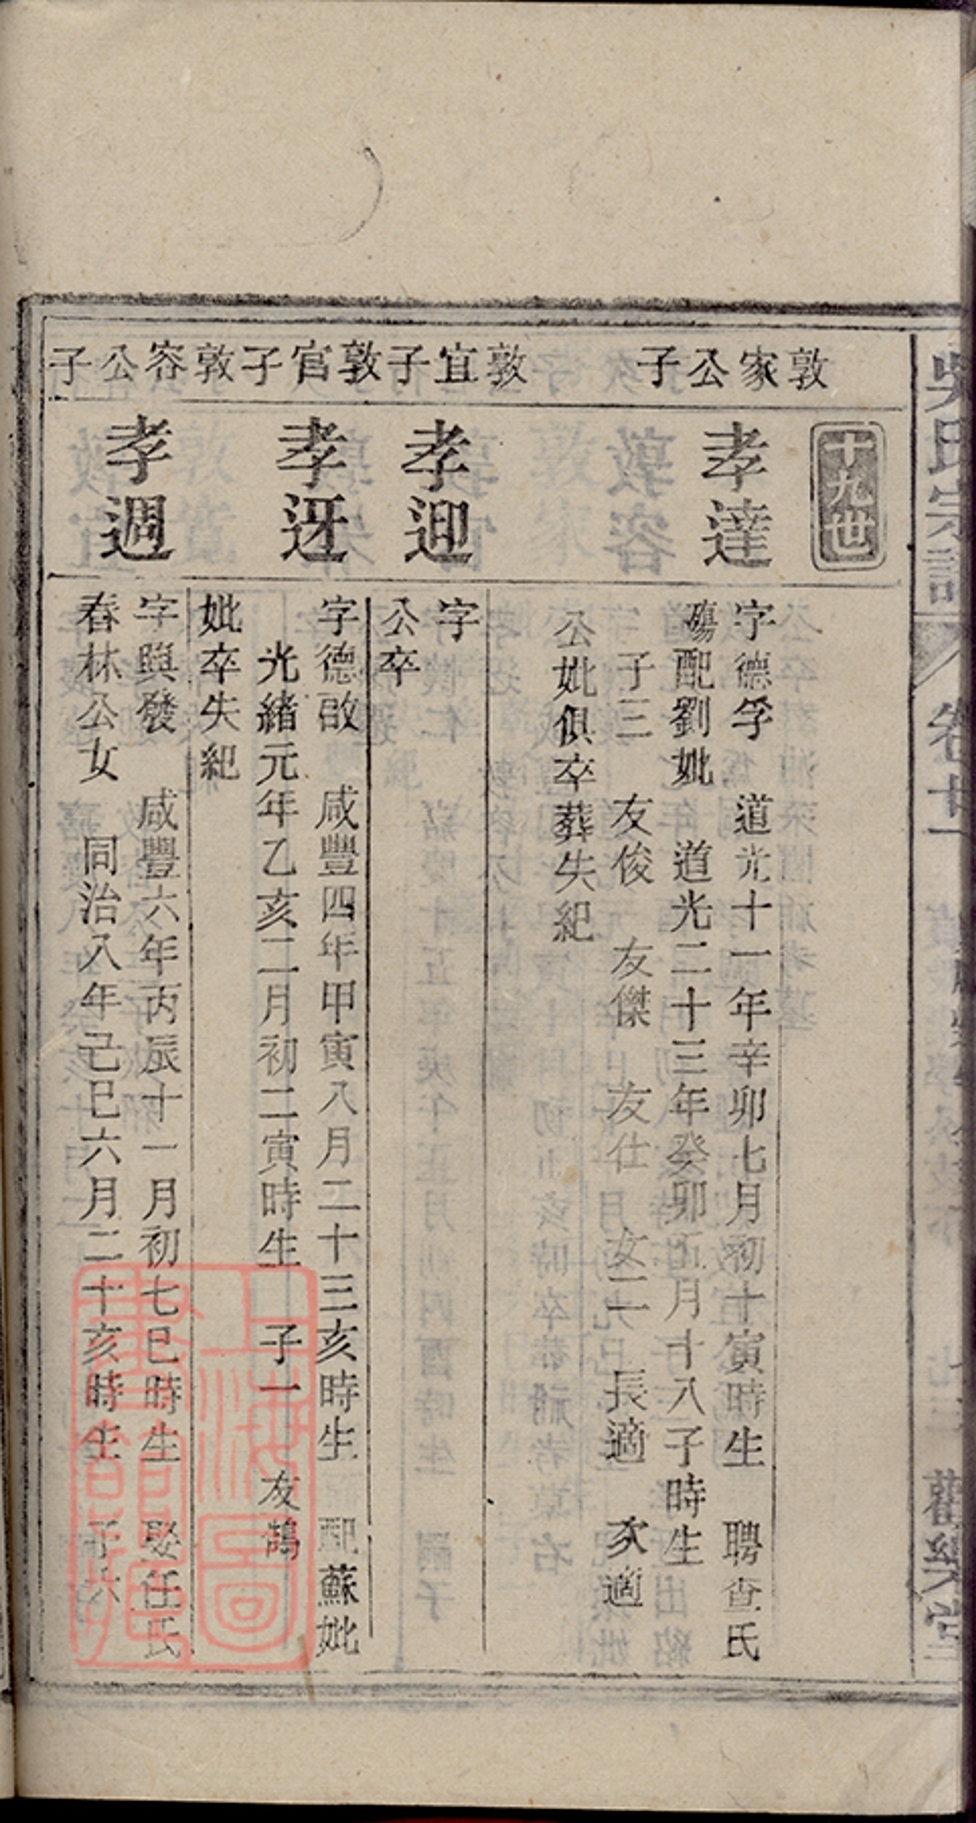 吳氏宗譜
卷十一
十九世
敦家公子
孝達
字德孚 道光十一年辛卯七月初十寅時生 聘查氏
殤配劉妣 道光二十三年癸卯五月十八子時生
子三 友俊 友傑 友仕 女二 長適 次適
公妣俱卒葬失紀
敦宜子
孝迎
字
公卒
敦官子
孝迓
字德啟 咸豐四年甲寅八月二十三亥時生 配蘇妣
光緒元年乙亥二月初二寅時生 子一 友鵠
妣卒失紀
敦容公子
孝週
字興發 咸豐六年丙辰十一月初七巳時生 娶任氏
春林公女 同治八年己巳六月二十亥時生 子六
上海圖書館藏